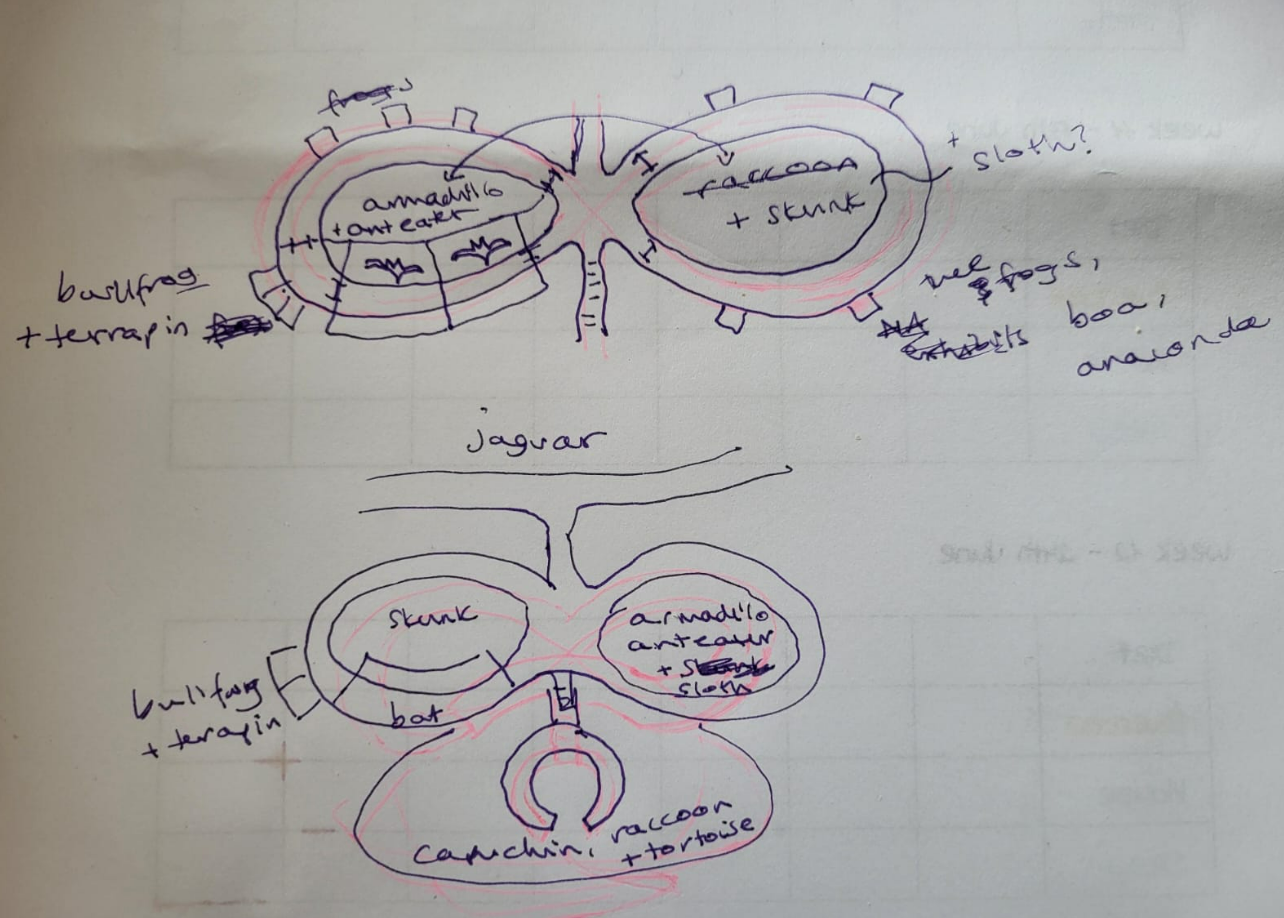 frogs
armadillo
+ anteater
raccoon
+ skunk
+
sloth?
bullfrog
+ terrapin
frogs,
boa,
anaconda
exhibits
jaguar
skunk
armadillo
anteater
+ skunk
sloth
bullfrog
+ terapin
bat
capuchin, raccoon
+ tortoise
week 11 - 17th June
week 12 - 24th June